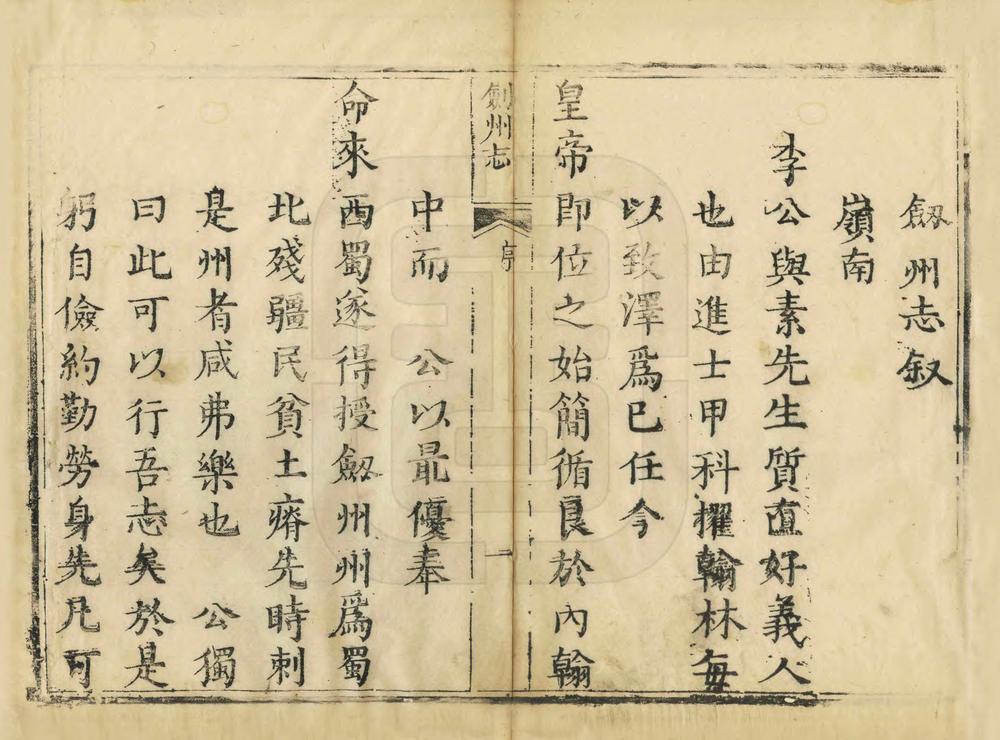 劔州志叙
嶺南
李公與素先生質直好義人
也由進士甲科擢翰林每
以致澤爲已任今
皇帝即位之始簡循良於內翰
劍州志
序
一
中而 公以最優奉
命來西蜀遂得授劔州州爲蜀
北殘疆民貧土瘠先時刺
是州者咸弗樂也 公獨
曰此可以行吾志矣於是
躬自儉約勤勞身先凡可